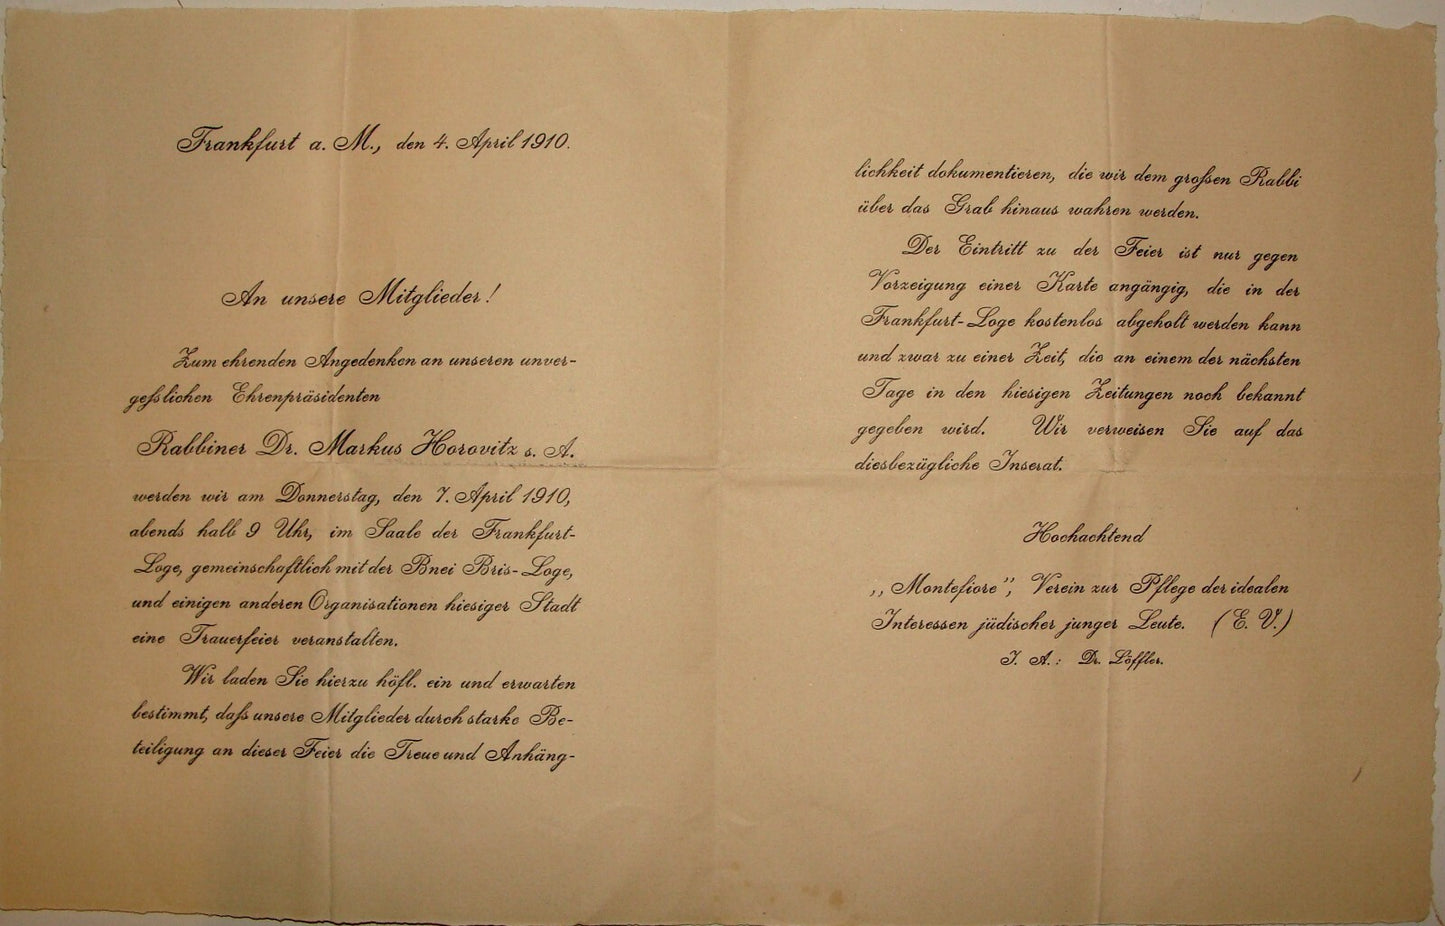 Frankfurt a. M., den 4. April 1910.
An unsere Mitglieder!
Zum ehrenden Angedenken an unseren unver-
geßlichen Ehrenpräsidenten
Rabbiner Dr. Markus Horovitz s. A.
werden wir am Donnerstag, den 7. April 1910,
abends halb 9 Uhr, im Saale der Frankfurt-
Loge, gemeinschaftlich mit der Bnei Bris-Loge,
und einigen anderen Organisationen hiesiger Stadt
eine Trauerfeier veranstalten.
Wir laden Sie hierzu höfl. ein und erwarten
bestimmt, daß unsere Mitglieder durch starke Be-
teiligung an dieser Feier die Treue und Anhäng-
lichkeit dokumentieren, die wir dem großen Rabbi
über das Grab hinaus wahren werden.
Der Eintritt zu der Feier ist nur gegen
Vorzeigung einer Karte angängig, die in der
Frankfurt-Loge kostenlos abgeholt werden kann
und zwar zu einer Zeit, die an einem der nächsten
Tage in den hiesigen Zeitungen noch bekannt
gegeben wird. Wir verweisen Sie auf das
diesbezügliche Inserat.
Hochachtend
,,Montefiore", Verein zur Pflege der idealen
Interessen jüdischer junger Leute. (E. V.)
I. A.: Dr. Löffler.